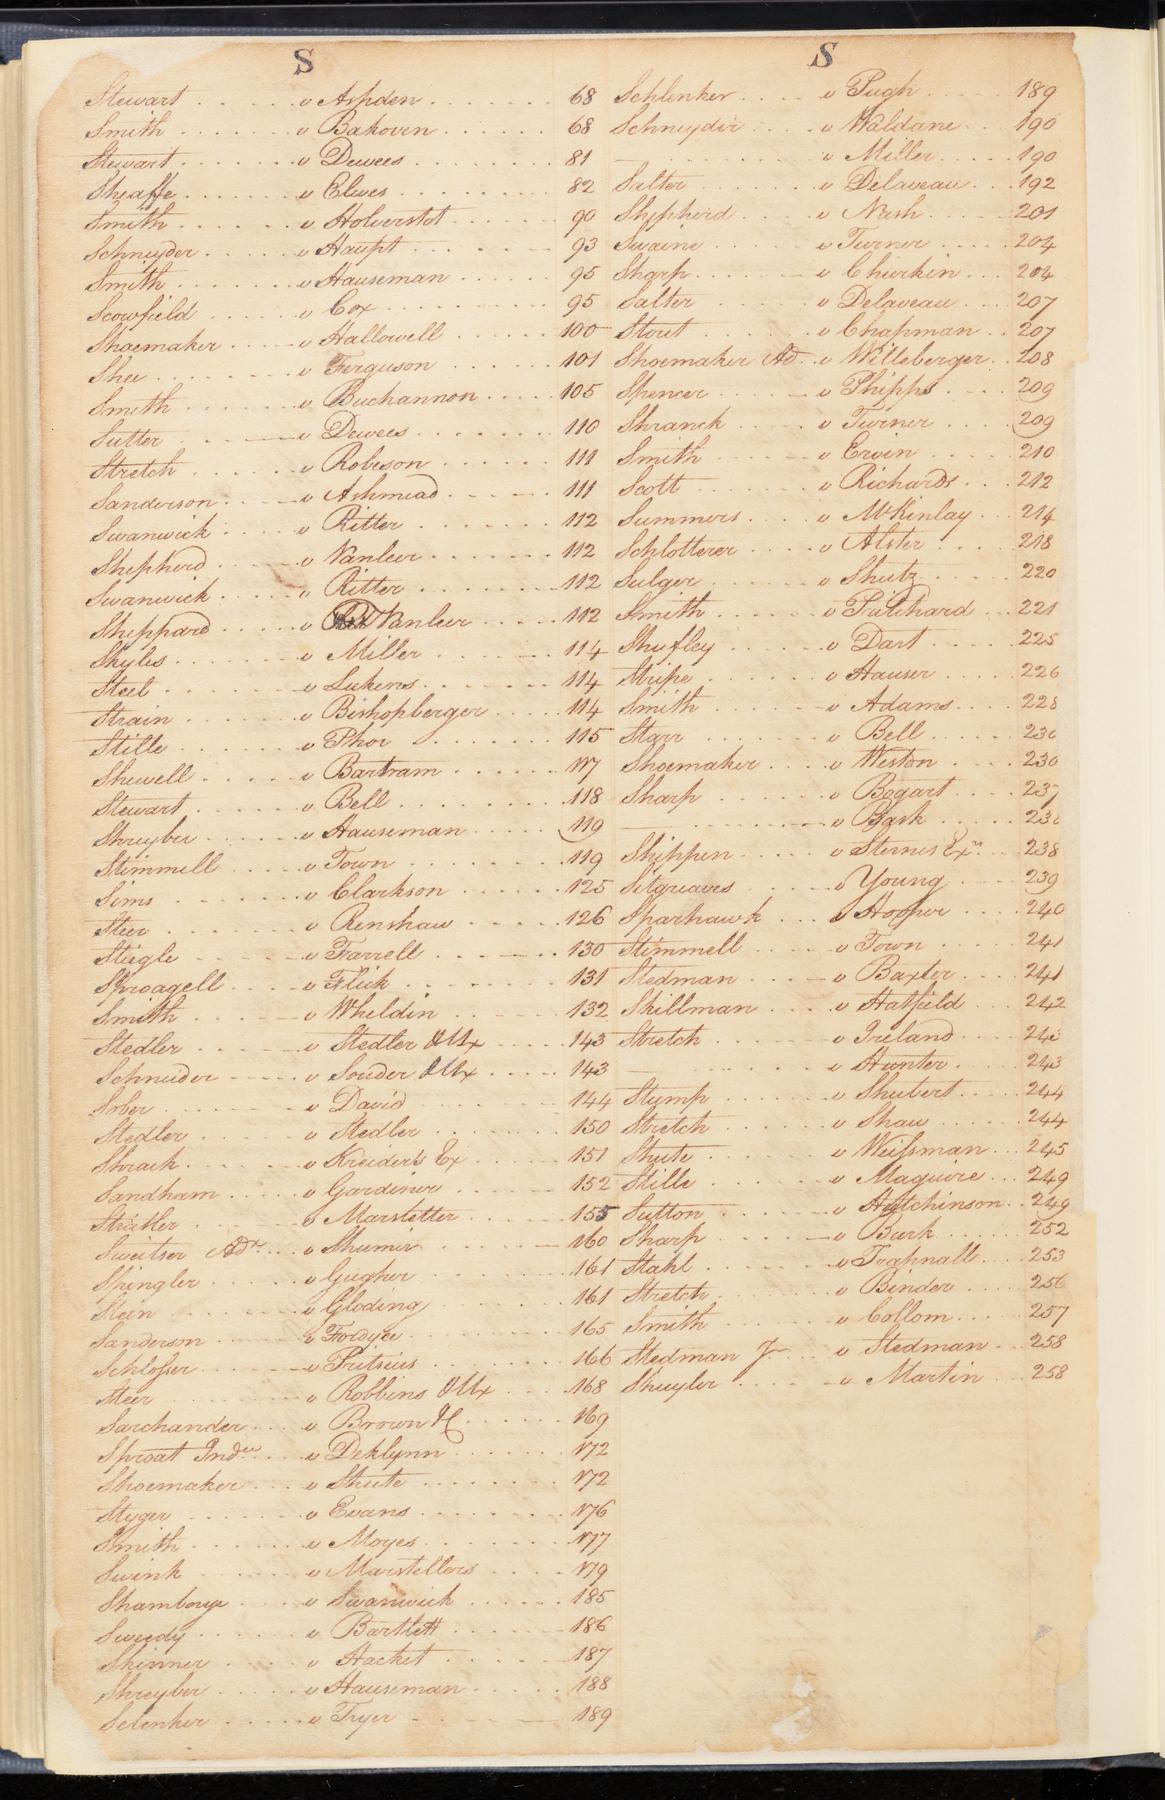 S
Stewart . . . . . . v Ashden . . . . . . . 68
Smith . . . . . . . v Bakoven . . . . . . 68
Stewart . . . . . . v Dewees . . . . . . . 81
Sheaffe . . . . . . v Elwes . . . . . . . 82
Smith . . . . . . . v Holverstot . . . . . 90
Schnyder . . . . . v Haupt . . . . . . . 93
Smith . . . . . . . v Hauseman . . . . . 95
Scowfield . . . . . v Cox . . . . . . . . 95
Shoemaker . . . . v Hallowell . . . . . . 100
Shee . . . . . . . v Ferguson . . . . . . 101
Smith . . . . . . . v Buchannon . . . . . 105
Sutter . . . . . . v Dewees . . . . . . . 110
Stretch . . . . . . v Robeson . . . . . . 111
Sanderson . . . . v Ashmead . . . . . . 111
Swanwick . . . . . v Ritter . . . . . . . 112
Shepherd . . . . . v Vanleer . . . . . . . 112
Swanwick . . . . . v Ritter . . . . . . . 112
Sheppard . . . . . v Vanleer . . . . . . 112
Skyles . . . . . . v Miller . . . . . . . 114
Steel . . . . . . . v Lukens . . . . . . . 114
Strain . . . . . . v Bishopberger . . . . 114
Stille . . . . . . . v Phor . . . . . . . 115
Shewell . . . . . . v Bartram . . . . . . 117
Stewart . . . . . . v Bell . . . . . . . . 118
Shreyber . . . . . v Hauseman . . . . . 119
Stimmell . . . . . v Town . . . . . . . 119
Sims . . . . . . . v Clarkson . . . . . . 125
Steer . . . . . . . v Renshaw . . . . . . 126
Stiegle . . . . . . v Farrell . . . . . . . 130
Sproagell . . . . . v Flick . . . . . . . 131
Smith . . . . . . . v Wheldin . . . . . . 132
Stedler . . . . . . v Stedler Ux . . . . . 143
Schneider . . . . . v Souder Ux . . . . . 143
Sober . . . . . . . v David . . . . . . . 144
Stedler . . . . . . v Stedler . . . . . . . 150
Shrack . . . . . . v Kreider's Ex . . . . . 151
Sandham . . . . . v Gardiner . . . . . . 152
Streitler . . . . . . v Marstetter . . . . . 155
Sweitser Adr. . . . v Shumir . . . . . . 160
Spingler . . . . . v Gugher . . . . . . 161
Steen . . . . . . . v Gloding . . . . . . 161
Sanderson . . . . v Fordyce . . . . . . 165
Schlosser . . . . . v Pritsius . . . . . . 166
Steer . . . . . . . v Robbins Ux . . . . 168
Sarchander . . . . v Brown . . . . . . 169
Sproat Indee . . . v Deklynn . . . . . . 172
Shoemaker . . . . v Shute . . . . . . . 172
Styger . . . . . . v Evans . . . . . . . 176
Smith . . . . . . . v Moyes . . . . . . . 177
Swink . . . . . . v Marstellors . . . . . 179
Shamboye . . . . v Swanwick . . . . . 185
Sweedy . . . . . . v Bartlett . . . . . . 186
Skinner . . . . . . v Hacket . . . . . . 187
Shreyber . . . . . v Hauseman . . . . . 188
Selenker . . . . . v Fryer . . . . . . . 189
S
Schlenker . . . . . v Pugh . . . . . 189
Schneyder . . . . v Waldane . . . 190
— . . . . . . . . v Miller . . . . . 190
Salter . . . . . . v Delaveau . . . 192
Shepherd . . . . . v Nash . . . . . 201
Swaine . . . . . . v Turner . . . . . 204
Sharp . . . . . . v Chirkin . . . . 204
Salter . . . . . . v Delaveau . . . 207
Stout . . . . . . v Chapman . . . 207
Shoemaker Ad. . . v Willeberger . . 208
Spencer . . . . . v Phipps . . . . 209
Shranck . . . . . v Turner . . . . 209
Smith . . . . . . v Ervin . . . . . 210
Scott . . . . . . v Richards . . . 212
Summers . . . . . v McKinlay . . . 214
Schlotterer . . . . v Alster . . . . 218
Sulger . . . . . . v Shutz . . . . . 220
Smith . . . . . . v Pritchard . . . 221
Shufley . . . . . v Dart . . . . . 225
Stripe . . . . . . v Hauser . . . . 226
Smith . . . . . . v Adams . . . . 228
Starr . . . . . . v Bell . . . . .
Shoemaker . . . . v Weston . . . . 230
Sharp . . . . . . v Bogart . . . . 237
— . . . . . . . . v Bash . . . .
Shippen . . . . . v Sternes Exrs . . 238
Sitgreaves . . . . v Young . . . . 239
Sparhawk . . . . v Hooper . . . . 240
Stimmell . . . . . v Town . . . . . 241
Stedman . . . . . v Baxter . . . . 241
Skillman . . . . . v Hatfield . . . 242
Stretch . . . . . v Ireland . . . . 243
— . . . . . . . . v Hunter . . . . 243
Stump . . . . . . v Shubert . . . . 244
Stretch . . . . . v Shaw . . . . . 244
Shute . . . . . . v Weissman . . . 245
Stille . . . . . . v Maguire . . . 249
Sutton . . . . . . v Hutchinson . . 249
Sharp . . . . . . v Burk . . . . . 252
Stahl . . . . . . v Trapnall . . . 253
Stretch . . . . . v Binder . . . . 256
Smith . . . . . . v Collom . . . . 257
Stedman J . . . . v Stedman . . . 258
Shuyler . . . . . v Martin . . . . 258